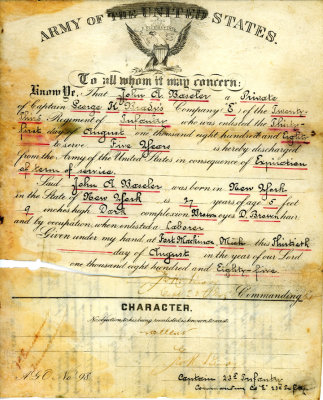 ARMY OF THE UNITED STATES.
To all whom it may concern:
Know Ye, That John A. Baseler a Private
of Captain George K. Brady's Company "E" of the Twenty-
third Regiment of Infantry who was enlisted the Thirty
First day of August one thousand eight hundred and Eighty
to serve Five Years is hereby discharged
from the Army of the United States in consequence of Expiration
of term of service.
Said John A Baseler was born in New York
in the State of New York is 27 years of age 5 feet
inches high Dark complexion Brown eyes D. Brown hair
and by occupation, when enlisted a Laborer
Given under my hand at Fort Mackinac Mich this Thirtieth
day of August in the year of our Lord
one thousand eight hundred and Eighty-five
Commanding
CHARACTER.
No objection to his being reenlisted is known to exist.
Excellent
A.G.O. No. 98.
Captain 23d Infantry
Commanding Co "E" 23d Infty